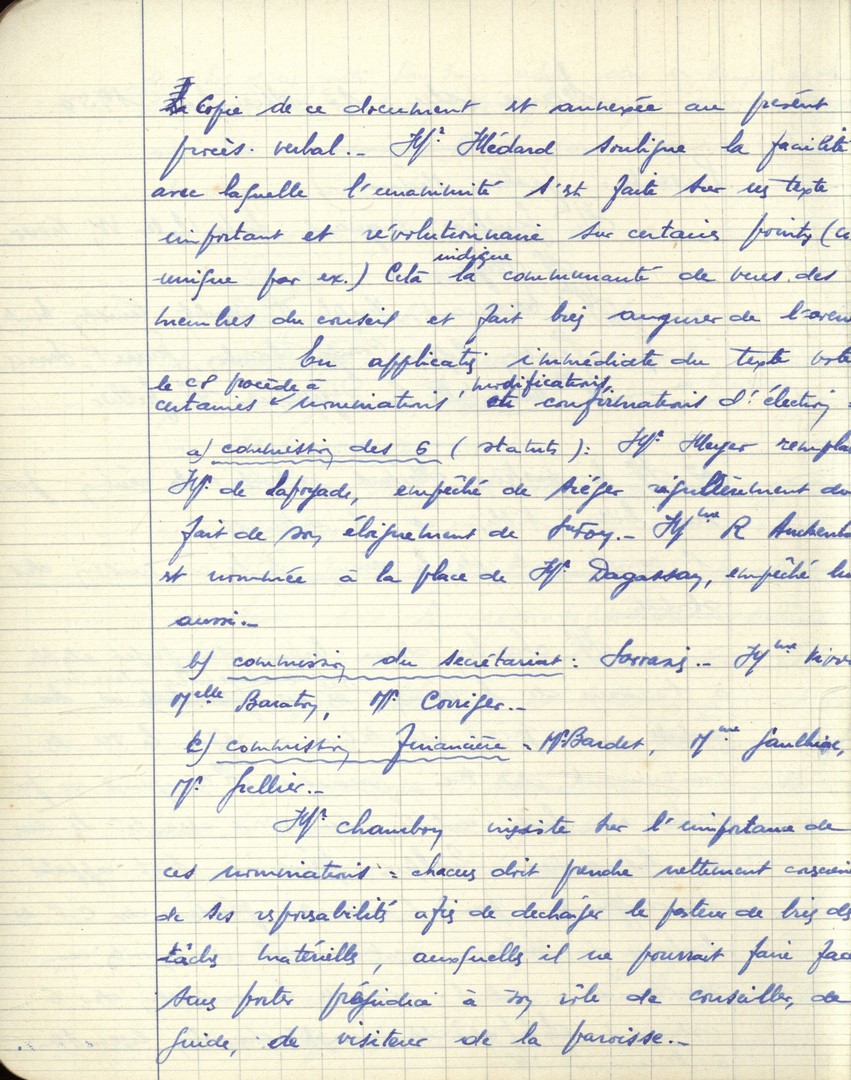 Copie de ce document est annexée au présent
procès-verbal.- Mr Médard souligne la facilité
avec laquelle l'unanimité s'est faite sur un texte
important et révolutionnaire sur certains points (
indique
unique par ex.) Cela la communauté de vues des
membres du conseil et fait bien augurer de l'aven
En application immédiate du texte voté
le CP procède à modifications,
certaines nominations, et confirmations d'élection :
a) commission des 6 (statuts): Mr Meyer rempla
Mr de Lafoyade, empêché de siéger régulièrement du
fait de son éloignement de Ste Foy.- Mme R
est nommée à la place de Mr Dagassan, empêché lui
aussi.-
b) commission du secrétariat: Sarrazi.- Mme
Melle Baratou, Mr Corriger.-
c) commission financière = Mr Bardet, Mme Gaulhiac,
Mr Grellier.-
Mr Chambon insiste sur l'importance de
ces nominations = chacun doit prendre nettement conscien
de ses responsabilités afin de decharger le pasteur de bien des
tâches matérielles, auxquelles il ne pourrait faire face
sans porter préjudice à son rôle de conseiller, de
guide, de visiteur de la paroisse.-